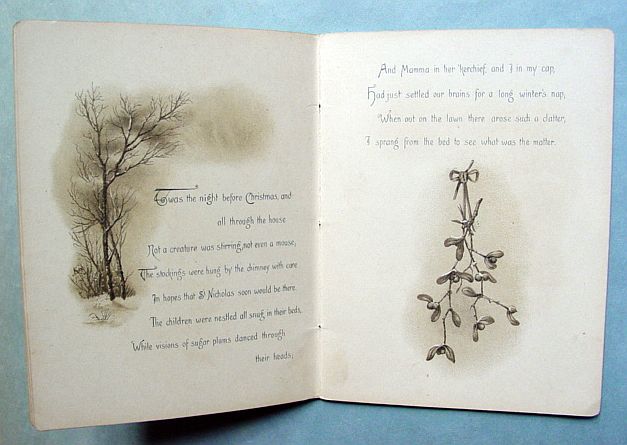 'Twas the night before Christmas, and
all through the house
Not a creature was stirring, not even a mouse;
The stockings were hung by the chimney with care
In hopes that St Nicholas soon would be there.
The children were nestled all snug in their beds,
While visions of sugar plums danced through
their heads;
And Mamma in her 'kerchief, and I in my cap,
Had just settled our brains for a long winter's nap,
When out on the lawn there arose such a clatter,
I sprang from the bed to see what was the matter.